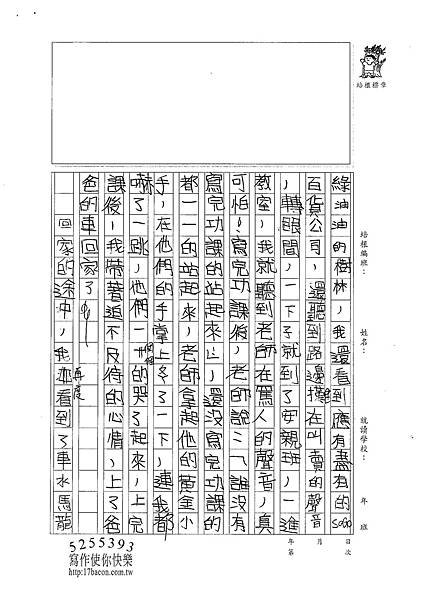 培根標章
培根編班：
姓名：
就讀學校：
年 班
年 月 日
第 次
綠油油的樹林，我還看到應有盡有的SOGO
百貨公司，還聽到路邊攤在叫賣的聲音
，轉眼間，一下子就到了安親班，一進
教室，我就聽到老師在罵人的聲音，真
可怕！寫完功課後，老師說：「誰沒有
寫完功課的站起來」，還沒寫完功課的
都一一的站起來，老師拿起他的黃金小
手，在他們的手掌上冬了一下，連我都
嚇了一跳，他們一個個的哭了起來，上完
課後，我帶著迫不及待的心情，上了爸
爸的車回家了。
回家的途中，我再度看到了車水馬龍
5255393
寫作使你快樂
http://17bacon.com.tw